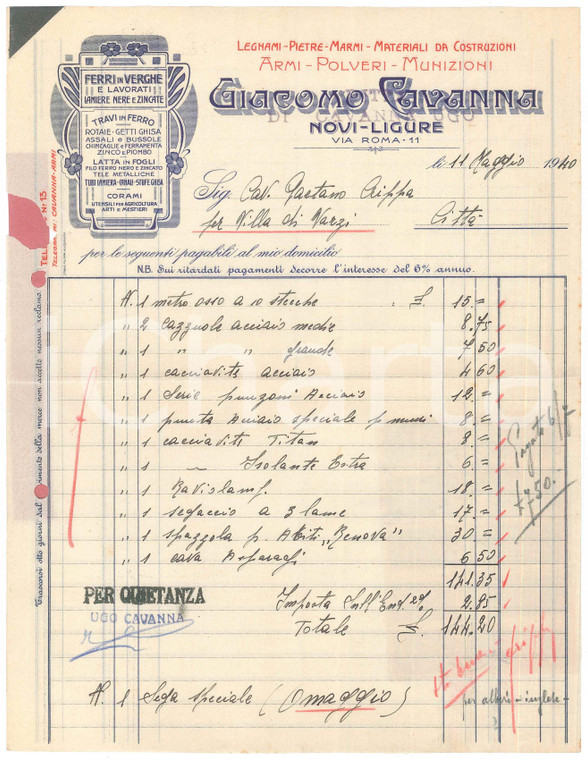 LEGNAMI - PIETRE - MARMI - MATERIALI DA COSTRUZIONI
ARMI - POLVERI - MUNIZIONI
GIACOMO CAVANNA
DI CAVANNA UGO
NOVI-LIGURE
VIA ROMA - 11
FERRI IN VERGHE
E LAVORATI
LAMIERE NERE E ZINGATE
TRAVI IN FERRO
ROTAIE - GETTI GHISA
ASSALI E BUSSOLE
CHINCAGLIE E FERRAMENTA
ZINCO E PIOMBO
LATTA IN FOGLI
FILO FERRO NERO E ZINCATO
TELE METALLICHE
TUBI LAMIERA - ORINAI - STUFE GHISA
CORAMI
UTENSILI PER AGRICOLTURA
ARTI E MESTIERI
N. 13
TELEGRAMMI: CAVANNA-ARMI
li 11 Maggio 1940
Sig. Cav. Gaetano
per Villa di Varzi Città
per le seguenti pagabili al mio domicilio
N.B. Sui ritardati pagamenti decorre l'interesse del 6% annuo.
Trascorsi otto giorni dal ricevimento della merce non accetto nessun reclamo
N. 1 metro osso a 10 stecche : £. 15.=
" 2 cazzuole acciaio medie 8.75
" 1 " " grande 7 50
" 1 cacciavite acciaio 4 60
" 1 Serie punzoni Acciaio 12.=
" 1 punta Acciaio speciale p muri 8.=
" 1 cacciavite Titan 8=
" 1 " Isolante Extra 6.=
" 1 18.=
" 1 segaccio a 3 lame 17.=
" 1 spazzola p. Abiti "Renova" 30=
" 1 cava Asparagi 6 50
141.35
Imposta Sull'Ent. 2% 2.85
Totale £. 144.20
Pagato 6/7
£750.-
PER QUIETANZA
UGO CAVANNA
N. 1 Sega speciale (Omaggio) per alberi - inglese -